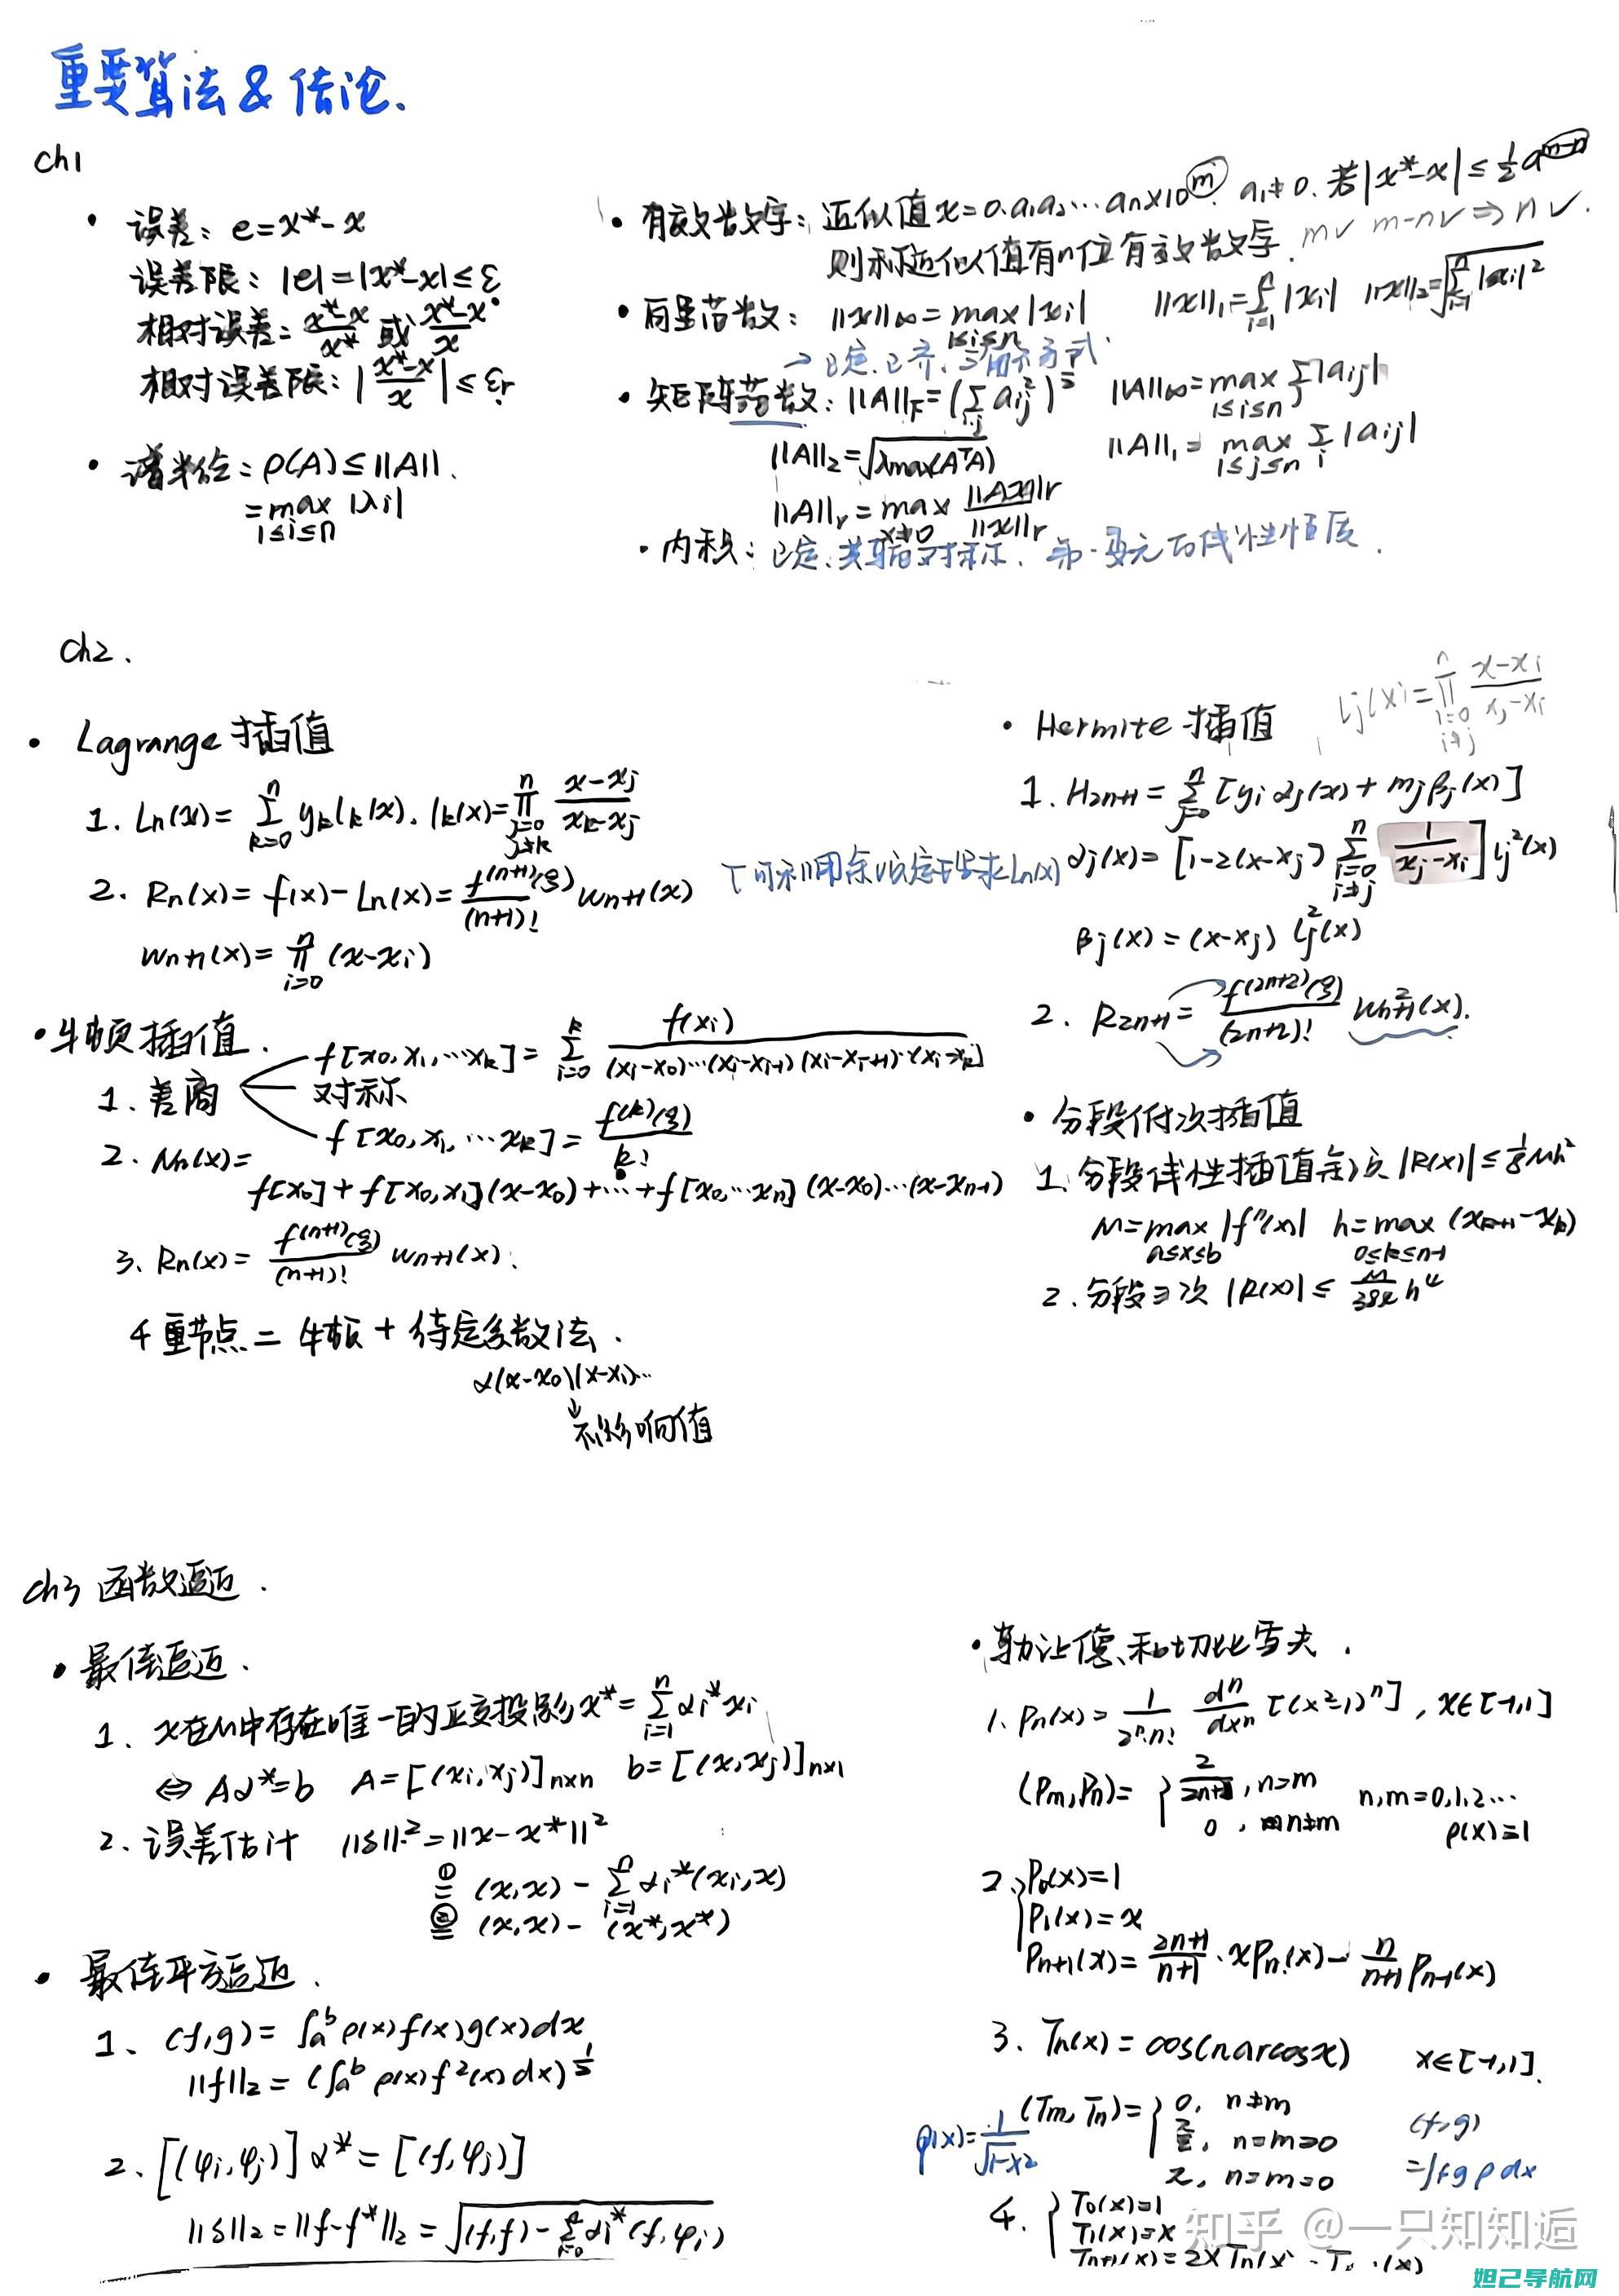 重要算法 & 结论.
ch1
· 误差: e=x*-x
误差限: |e|=|x*-x|≤ε
相对误差: (x*-x)/x* 或 (x*-x)/x
相对误差限: |(x*-x)/x|≤εr
· 谱半径: ρ(A)≤||A||.
=max |λi|
1≤i≤n
· 有效数字: 近似值 x=0.a1a2…an×10^m. a1≠0. 若|x*-x|≤½a^(m-n)
则称近似值有n位有效数字. m✓ m-n✓ ⇒ n✓.
· 向量范数: ||x||∞=max|xi| 1≤i≤n ||x||1=∑(i=1→n)|xi| ||x||2=√(∑(i=1→n)|xi|²)
→正定.正齐.三角不等式.
· 矩阵范数: ||A||F=(∑i,j aij²)^½ ||A||∞=max(1≤i≤n) ∑j|aij|
||A||2=√(λmax(AᵀA)) ||A||1=max(1≤j≤n) ∑i|aij|
||A||r=max(x≠0) ||Ax||r/||x||r
· 内积: 正定.共轭对称. 第一变元的线性性质.
ch2.
· Lagrange 插值
1. Ln(x)=∑(k=0→n) yk lk(x). lk(x)=∏(j=0→n, j≠k) (x-xj)/(xk-xj)
2. Rn(x)=f(x)-Ln(x)=f^(n+1)(ξ)/(n+1)! wn+1(x)
wn+1(x)=∏(i=0→n)(x-xi)
· 牛顿插值.
1. 差商
f[x0,x1,…xk]=∑(i=0→k) f(xi)/((xi-x0)…(xi-xi-1)(xi-xi+1)…(xi-xk))
对称
f[x0,x1,…xk]=f^(k)(ξ)/k!
2. Nn(x)=
f[x0]+f[x0,x1](x-x0)+…+f[x0,…xn](x-x0)…(x-xn-1)
3. Rn(x)=f^(n+1)(ξ)/(n+1)! wn+1(x).
4 重节点=牛顿+待定系数法.
α(x-x0)(x-x1)…
↓
不影响值
· Hermite 插值
lj(x)=∏(i=0→n, i≠j) (x-xi)/(xj-xi)
1. H2n+1=∑(j=0→n)[yi αj(x)+mjβj(x)]
αj(x)=[1-2(x-xj)∑(i=0→n, i≠j) 1/(xj-xi)]lj²(x)
βj(x)=(x-xj)lj²(x)
2. R2n+1=f^(2n+2)(ξ)/(2n+2)! wn+1²(x).
· 分段低次插值
1. 分段线性插值余项|R(x)|≤⅛Mh²
M=max(a≤x≤b)|f''(x)| h=max(0≤k≤n-1)(xk+1-xk)
2. 分段三次 |R(x)|≤M/384 h⁴
ch3 函数逼近.
· 最佳逼近.
1. x在M中存在唯一的正交投影x*=∑(i=1→n)αi*xi
⇔ Aα*=b A=[(xi,xj)]n×n b=[(x,xj)]n×1
2. 误差估计 ||δ||²=||x-x*||²
①= (x,x)-∑(i=1→n)αi*(xi,x)
②= (x,x)-(x*,x*)
· 最佳平方逼近.
1. (f,g)=∫a^b ρ(x)f(x)g(x)dx
||f||2=(∫a^b ρ(x)f²(x)dx)^½
2. [(φi,φj)]α*=[(f,φj)]
||δ||2=||f-f*||2=√((f,f)-∑(i=0→n)αi*(f,φi))
· 勒让德和切比雪夫.
1. Pn(x)=1/(2ⁿ·n!) dⁿ/dxⁿ[(x²-1)ⁿ], x∈[-1,1]
(Pm,Pn)={2/(2n+1), n=m
0, n≠m n,m=0,1,2…
ρ(x)=1
2. {P0(x)=1
P1(x)=x
Pn+1(x)=(2n+1)/(n+1)·xPn(x)-n/(n+1)Pn-1(x)
3. Tn(x)=cos(narcosx) x∈[-1,1].
ρ(x)=1/√(1-x²) (Tm,Tn)={0, n≠m
π/2, n=m≠0
π, n=m=0
(f,g)
=∫fgρdx
4. {T0(x)=1
T1(x)=x
Tn+1(x)=2xTn(x)-Tn-1(x)
知乎 @一只知知逅
妲己导航网